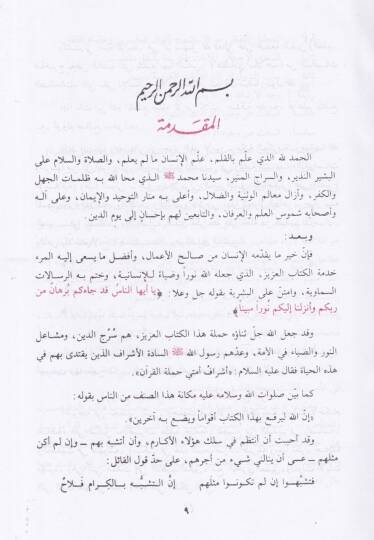 بسم الله الرحمن الرحيم
المقدمة
الحمد لله الذي علّم بالقلم، علّم الإنسان ما لم يعلم، والصلاة والسلام على
البشير النذير، والسراج المنير، سيدنا محمد ﷺ الذي محا الله به ظلمات الجهل
والكفر، وأزال معالم الوثنية والضلال، وأعلى به منار التوحيد والإيمان، وعلى آله
وأصحابه شموس العلم والعرفان، والتابعين لهم بإحسان إلى يوم الدين.
وبعد:
فإنّ خير ما يقدّمه الإنسان من صالح الأعمال، وأفضل ما يسعى إليه المرء
خدمة الكتاب العزيز، الذي جعله الله نوراً وضياءً للإنسانية، وختم به الرسالات
السماوية، وامتنّ على البشرية بقوله جل وعلا: ﴿يا أيها الناسُ قد جاءكم بُرهانٌ من
ربكم وأنزلنا إليكم نُوراً مبيناً﴾
وقد جعل الله جلّ ثناؤه حملة هذا الكتاب العزيز، هم سُرُج الدين، ومشاعل
النور والضياء في الأمة، وعدّهم رسول الله ﷺ السادة الأشراف الذين يقتدى بهم في
هذه الحياة فقال عليه السلام: «أشرافُ أمتي حملة القرآن».
كما بيّن صلوات الله وسلامه عليه مكانة هذا الصنف من الناس بقوله:
«إنّ الله ليرفع بهذا الكتاب أقواماً ويضع به آخرين».
وقد أحببت أن أنتظم في سلك هؤلاء الأكارم، وأن أتشبه بهم ـ وإن لم أكن
مثلهم ـ عسى أن ينالني شيء من أجرهم، على حدّ قول القائل:
فتشبَّهوا إن لم تكونوا مثلَهم إنَّ التشبُّه بالكِرام فَلاحُ
٩